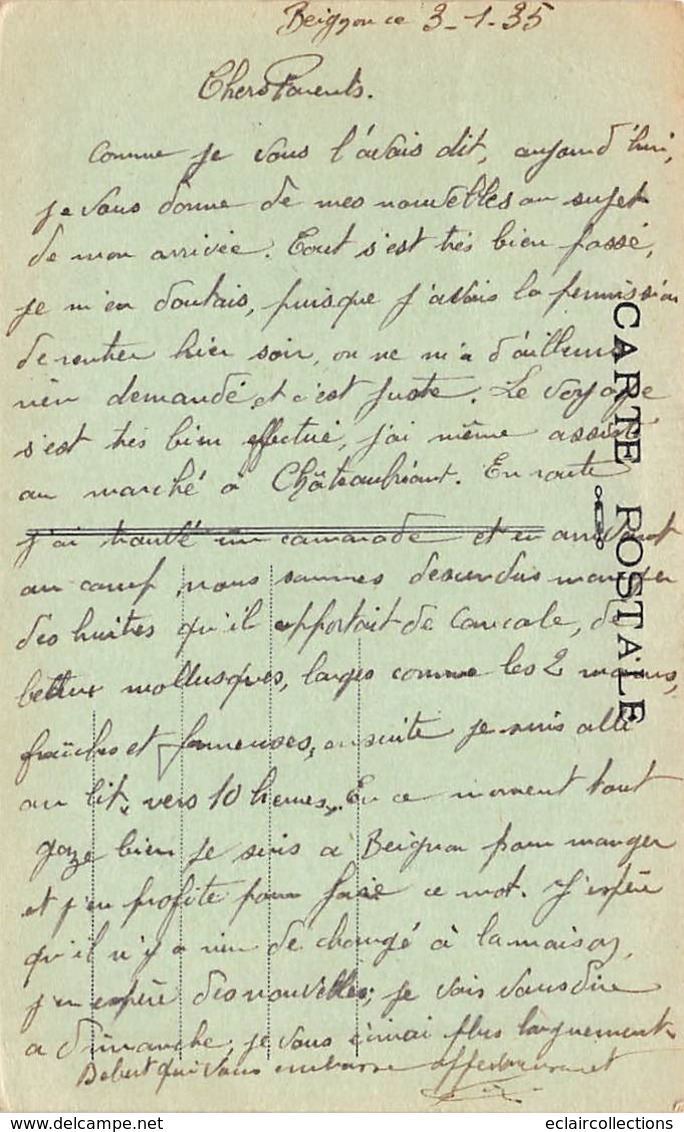 Beignon ce 3-1-35
Chers Parents.
Comme je vous l'avais dit, aujourd'hui,
je vous donne de mes nouvelles au sujet
de mon arrivée. Tout s'est très bien passé,
je m'en doutais, puisque j'avais la permission
de rentrer hier soir, on ne m'a d'ailleurs
rien demandé et c'est juste. Le voyage
s'est très bien effectué, j'ai même assisté
au marché à Châteaubriant. En route
j'ai trouvé un camarade et en arrivant
au camp, nous sommes descendus manger
des huitres qu'il apportait de Cancale, de
belles mollusques, larges comme les 2 mains,
fraîches et fameuses, ensuite je suis allé
au lit, vers 10 heures. En ce moment tout
gaze bien je suis à Beignon pour manger
et j'en profite pour faire ce mot. J'espère
qu'il n'y a rien de changé à la maison,
j'en espère des nouvelles; je vais vous dire
a dimanche, je vous écrirai plus longuement
Bebert qui vous embrasse affectueusement
CARTE POSTALE
eclaircollections@delcampe.net